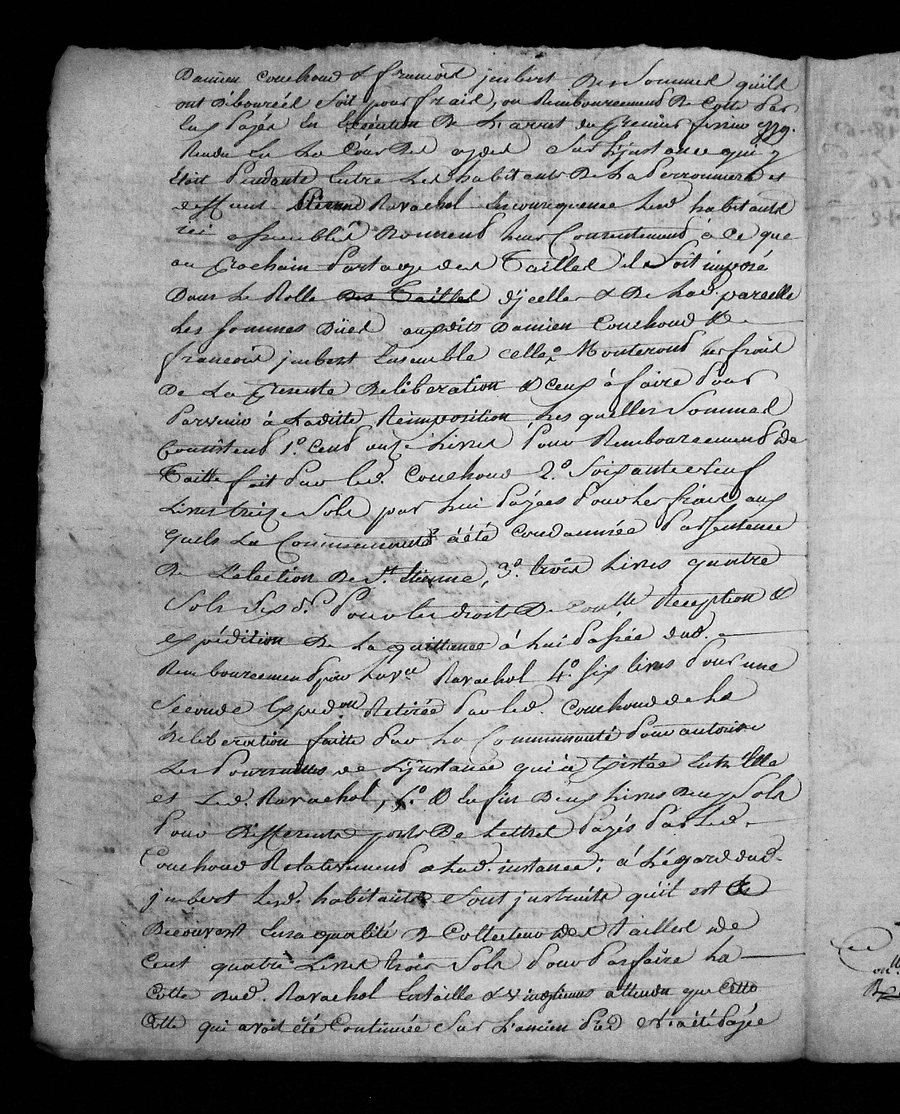 Damien Couchoud & francois jmbert Des Sommes quils
ont Déboureés Soit pour frais, ou Remboursement De Cotte Par
Eux Payés En Execution De Larret du premier fevrier 1779.
Rendu En La Cour Des aydes Sur L'jnstance qui y
Etoit Pendante Entre Les habitants De La Perronniere et
deffeunt Etienne Ravachol En conséquence Lesd. habitants
ici assemblés Donnent Leur Consentement à Ce que
au Prochain Partage des Tailles il Soit imposé
Dans Le Rolle des Tailles d'jcelles & De Lad. parcelle
Les Sommes Dües auxdits Damien Couchoud &
francois jmbert Ensemble celles Monteront Les frais
De La Presente Deliberation & Ceux à faire Pour
Parvenir à Laditte Réimposition Les quelles Sommes
Consistent 1°. Cent onze Livres Pour Remboursement de
Taille fait Par led. Couchoud 2°. Soixante neuf
Livres treize Sols par Lui Payées Pour Les frais aux
quels La Communauté à été Condannée Par Sentence
De L'élection De St. Etienne, 3°. trois Livres quatre
Sols Six d. Pour les droit De Conlle Reception &
expédition De La quittance à Lui Passée dud.
Remboursement par La ve. Ravachol 4°. Six livres Pour une
Seconde Expedon Retirée Par led. Couchoud de La
Déliberation faitte Par La Communauté Pour autoriser
Les Poursuittes de L'jnstance qui à Existée Entr'Elle
et Led. Ravachol, 5°. & Enfin Deux Livres Deux Sols
Pour Differents ports De Lettres Payés Par Led.
Couchoud Relativement a Lad. instance; à L'égard dud.
jmbert Lesd. habitants Sont jnstruits qu'il est De
Decouvert En sa qualité De Collecteur des Tailles de
Cent quatre Livres trois Sols Pour Parfaire La
Cotte Dud. Ravachol En taille & vingtiemes attendu que Cette
Cotte qui avoit été Continuée Sur L'ancien Pied n'a été Payée